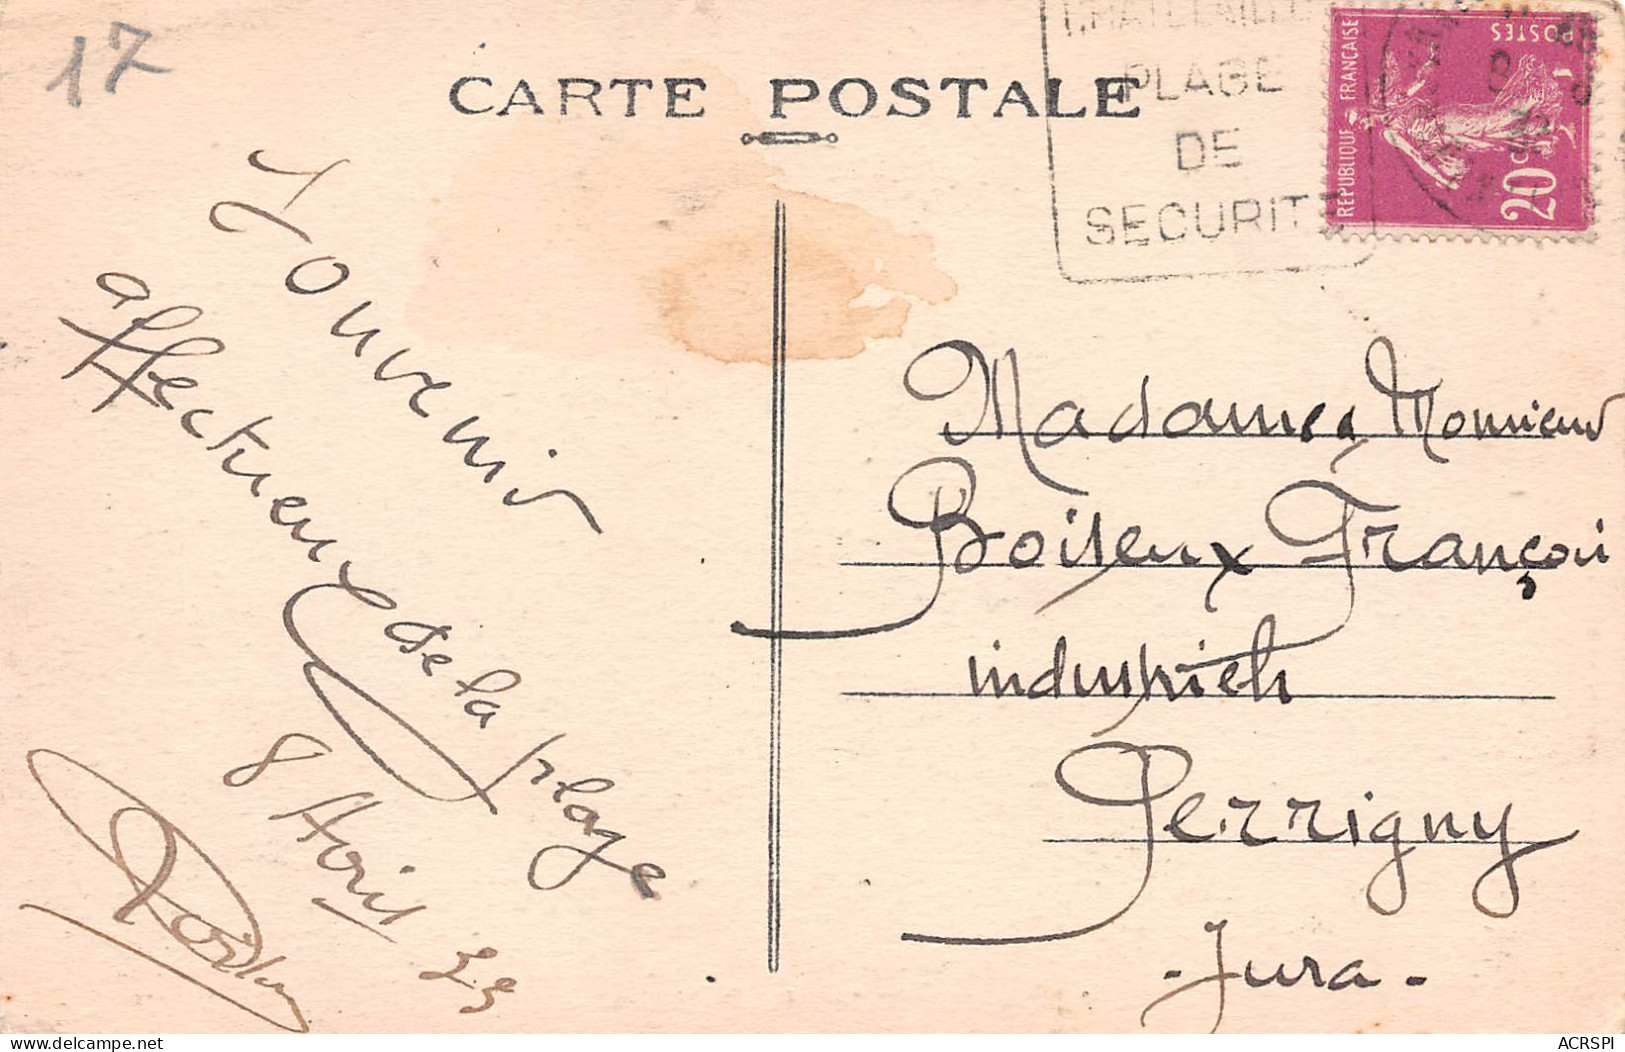 17
CARTE POSTALE
PLAGE
DE
SECURITE
REPUBLIQUE FRANÇAISE
POSTES
20 C
Souvenir
affectueux
de la plage
8 Avril 33
Madame & Monsieur
Boiseux François
industriels
Perrigny
- Jura -
delcampe.net
ACRSPI